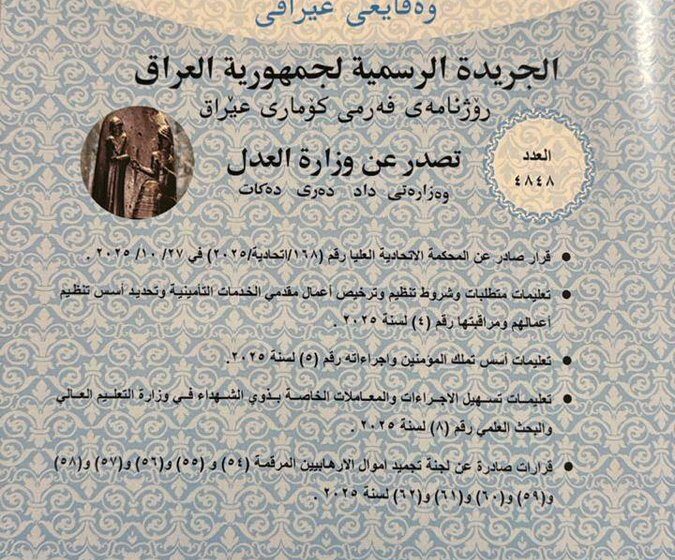 وەقایعی عیراقی
الجريدة الرسمية لجمهورية العراق
رۆژنامەی فەرمی كۆماری عێراق
تصدر عن وزارة العدل
وەزارەتی داد دەری دەكات
العدد
٤٨٤٨
● قرار صادر عن المحكمة الاتحادية العليا رقم (١٦٨/اتحادية/٢٠٢٥) في ٢٧/ ١٠/ ٢٠٢٥ .
● تعليمات متطلبات وشروط تنظيم وترخيص أعمال مقدمي الخدمات التأمينية وتحديد أسس تنظيم
أعمالهم ومراقبتها رقم (٤) لسنة ٢٠٢٥ .
● تعليمات أسس تملك المؤمنين واجراءاته رقم (٥) لسنة ٢٠٢٥.
● تعليمات تسهيل الاجراءات والمعاملات الخاصة بذوي الشهداء في وزارة التعليم العالي
والبحث العلمي رقم (٨) لسنة ٢٠٢٥ .
● قرارات صادرة عن لجنة تجميد اموال الارهابيين المرقمة (٥٤) و (٥٥) و(٥٦) و(٥٧) و(٥٨)
و(٥٩) و(٦٠) و(٦١) و(٦٢) لسنة ٢٠٢٥ .